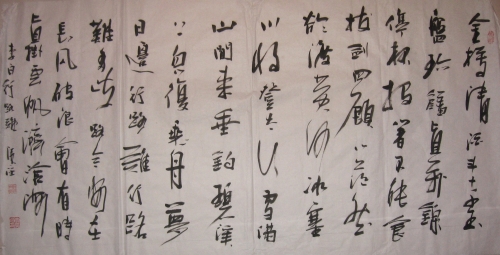 金樽清酒斗十千玉
盤珍饈直萬錢
停杯投箸不能食
拔劍四顧心茫然
欲渡黄河冰塞
川將登太行雪滿
山閒來垂釣碧溪
上忽復乘舟夢
日邊行路難行路
難多歧路今安在
長風破浪會有時
直掛雲帆濟滄海
李白行路難